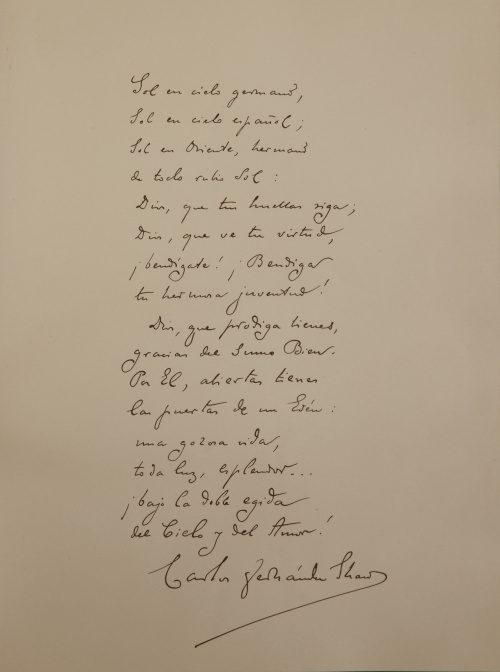 Sol en cielo germano,
Sol en cielo español;
Sol en Oriente, hermano
de todo rubio Sol:
Dios, que tus huellas siga;
Dios, que ve tu virtud,
¡bendígate! ¡Bendiga
tu hermosa juventud!
Dios, que prodiga bienes,
gracias del Sumo Bien.
Por El, abiertas tienes
las puertas de un Edén:
una gozosa vida,
toda luz, esplendor...
¡bajo la doble egida
del Cielo y del Amor!
Carlos Fernández Shaw